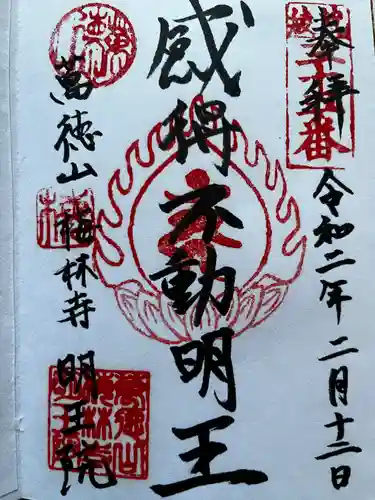 奉拝
令和二年二月十二日
感得不動明王
萬徳山
梅林寺
明王院